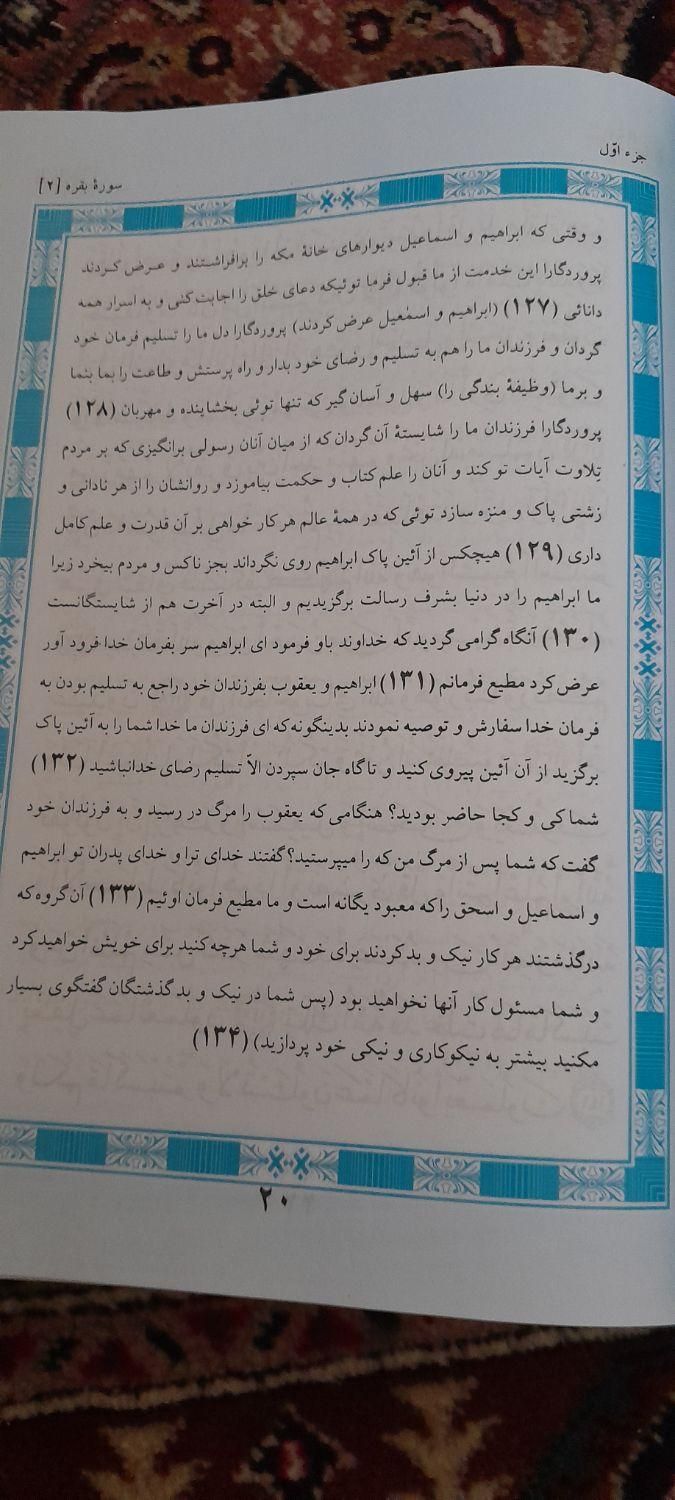 جزء اوّل
سورۀ بقره [۲]
و وقتی که ابراهیم و اسماعیل دیوارهای خانۀ مکه را برافراشتند و عرض کردند
پروردگارا این خدمت از ما قبول فرما توئیکه دعای خلق را اجابت کنی و به اسرار همه
دانائی (۱۲۷) (ابراهیم و اسمٰعیل عرض کردند) پروردگارا دل ما را تسلیم فرمان خود
گردان و فرزندان ما را هم به تسلیم و رضای خود بدار و راه پرستش و طاعت را بما بنما
و برما (وظیفۀ بندگی را) سهل و آسان گیر که تنها توئی بخشاینده و مهربان (۱۲۸)
پروردگارا فرزندان ما را شایستۀ آن گردان که از میان آنان رسولی برانگیزی که بر مردم
تِلاوت آیات تو کند و آنان را علم کتاب و حکمت بیاموزد و روانشان را از هر نادانی و
زشتی پاک و منزه سازد توئی که در همۀ عالم هر کار خواهی بر آن قدرت و علم کامل
داری (۱۲۹) هیچکس از آئین پاک ابراهیم روی نگرداند بجز ناکس و مردم بیخرد زیرا
ما ابراهیم را در دنیا بشرف رسالت برگزیدیم و البته در آخرت هم از شایستگانست
(۱۳۰) آنگاه گرامی گردید که خداوند باو فرمود ای ابراهیم سر بفرمان خدا فرود آور
عرض کرد مطیع فرمانم (۱۳۱) ابراهیم و یعقوب بفرزندان خود راجع به تسلیم بودن به
فرمان خدا سفارش و توصیه نمودند بدینگونه که ای فرزندان ما خدا شما را به آئین پاک
برگزید از آن آئین پیروی کنید و تاگاه جان سپردن الاّ تسلیم رضای خدانباشید (۱۳۲)
شما کی و کجا حاضر بودید؟ هنگامی که یعقوب را مرگ در رسید و به فرزندان خود
گفت که شما پس از مرگ من که را میپرستید؟ گفتند خدای ترا و خدای پدران تو ابراهیم
و اسماعیل و اسحق را که معبود یگانه است و ما مطیع فرمان اوئیم (۱۳۳) آن گروه که
درگذشتند هر کار نیک و بد کردند برای خود و شما هرچه کنید برای خویش خواهید کرد
و شما مسئول کار آنها نخواهید بود (پس شما در نیک و بد گذشتگان گفتگوی بسیار
مکنید بیشتر به نیکوکاری و نیکی خود پردازید) (۱۳۴)
۲۰